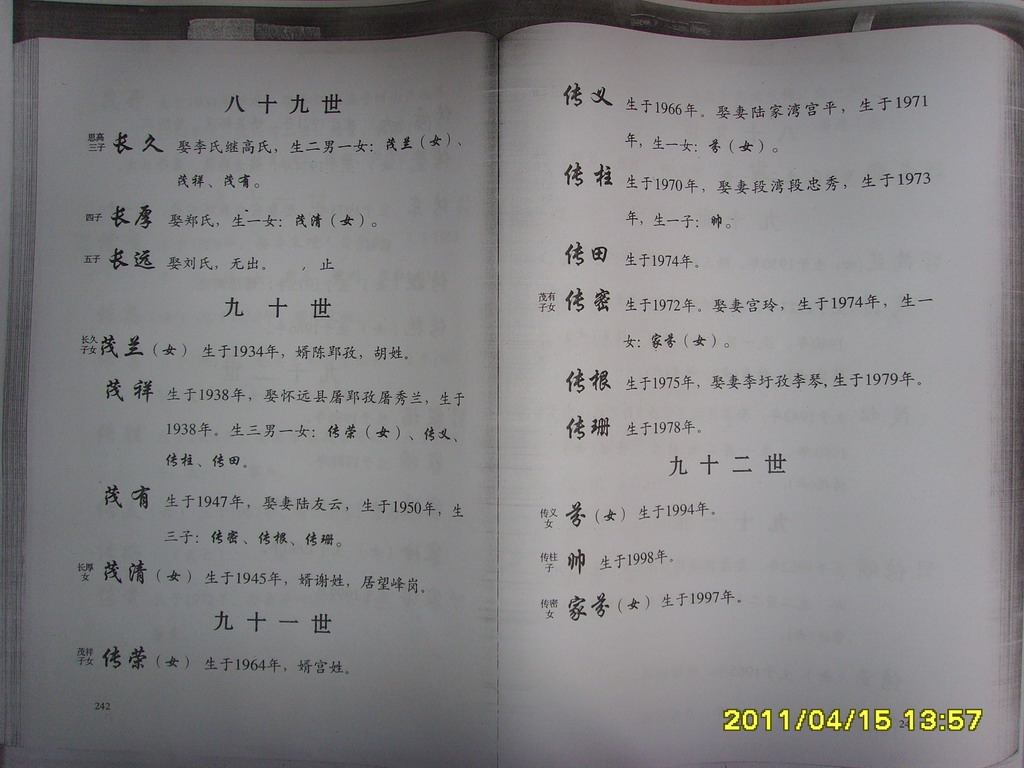 八十九世
思高三子 长久 娶李氏继高氏，生二男一女：茂兰（女）、
茂祥、茂有。
四子 长厚 娶郑氏，生一女：茂清（女）。
五子 长远 娶刘氏，无出。 止
九十世
长久子女 茂兰（女） 生于1934年，婿陈郢孜，胡姓。
茂祥 生于1938年，娶怀远县屠郢孜屠秀兰，生于
1938年。生三男一女：传荣（女）、传义、
传柱、传田。
茂有 生于1947年，娶妻陆友云，生于1950年，生
三子：传密、传根、传珊。
长厚女 茂清（女） 生于1945年，婿谢姓，居望峰岗。
九十一世
茂祥子女 传荣（女） 生于1964年，婿宫姓。
242
传义 生于1966年。娶妻陆家湾宫平，生于1971
年，生一女：芬（女）。
传柱 生于1970年，娶妻段湾段忠秀，生于1973
年，生一子：帅。
传田 生于1974年。
茂有子女 传密 生于1972年。娶妻宫玲，生于1974年，生一
女：家芬（女）。
传根 生于1975年，娶妻李圩孜李琴，生于1979年。
传珊 生于1978年。
九十二世
传义女 芬（女） 生于1994年。
传柱子 帅 生于1998年。
传密女 家芬（女） 生于1997年。
2011/04/15 13:57